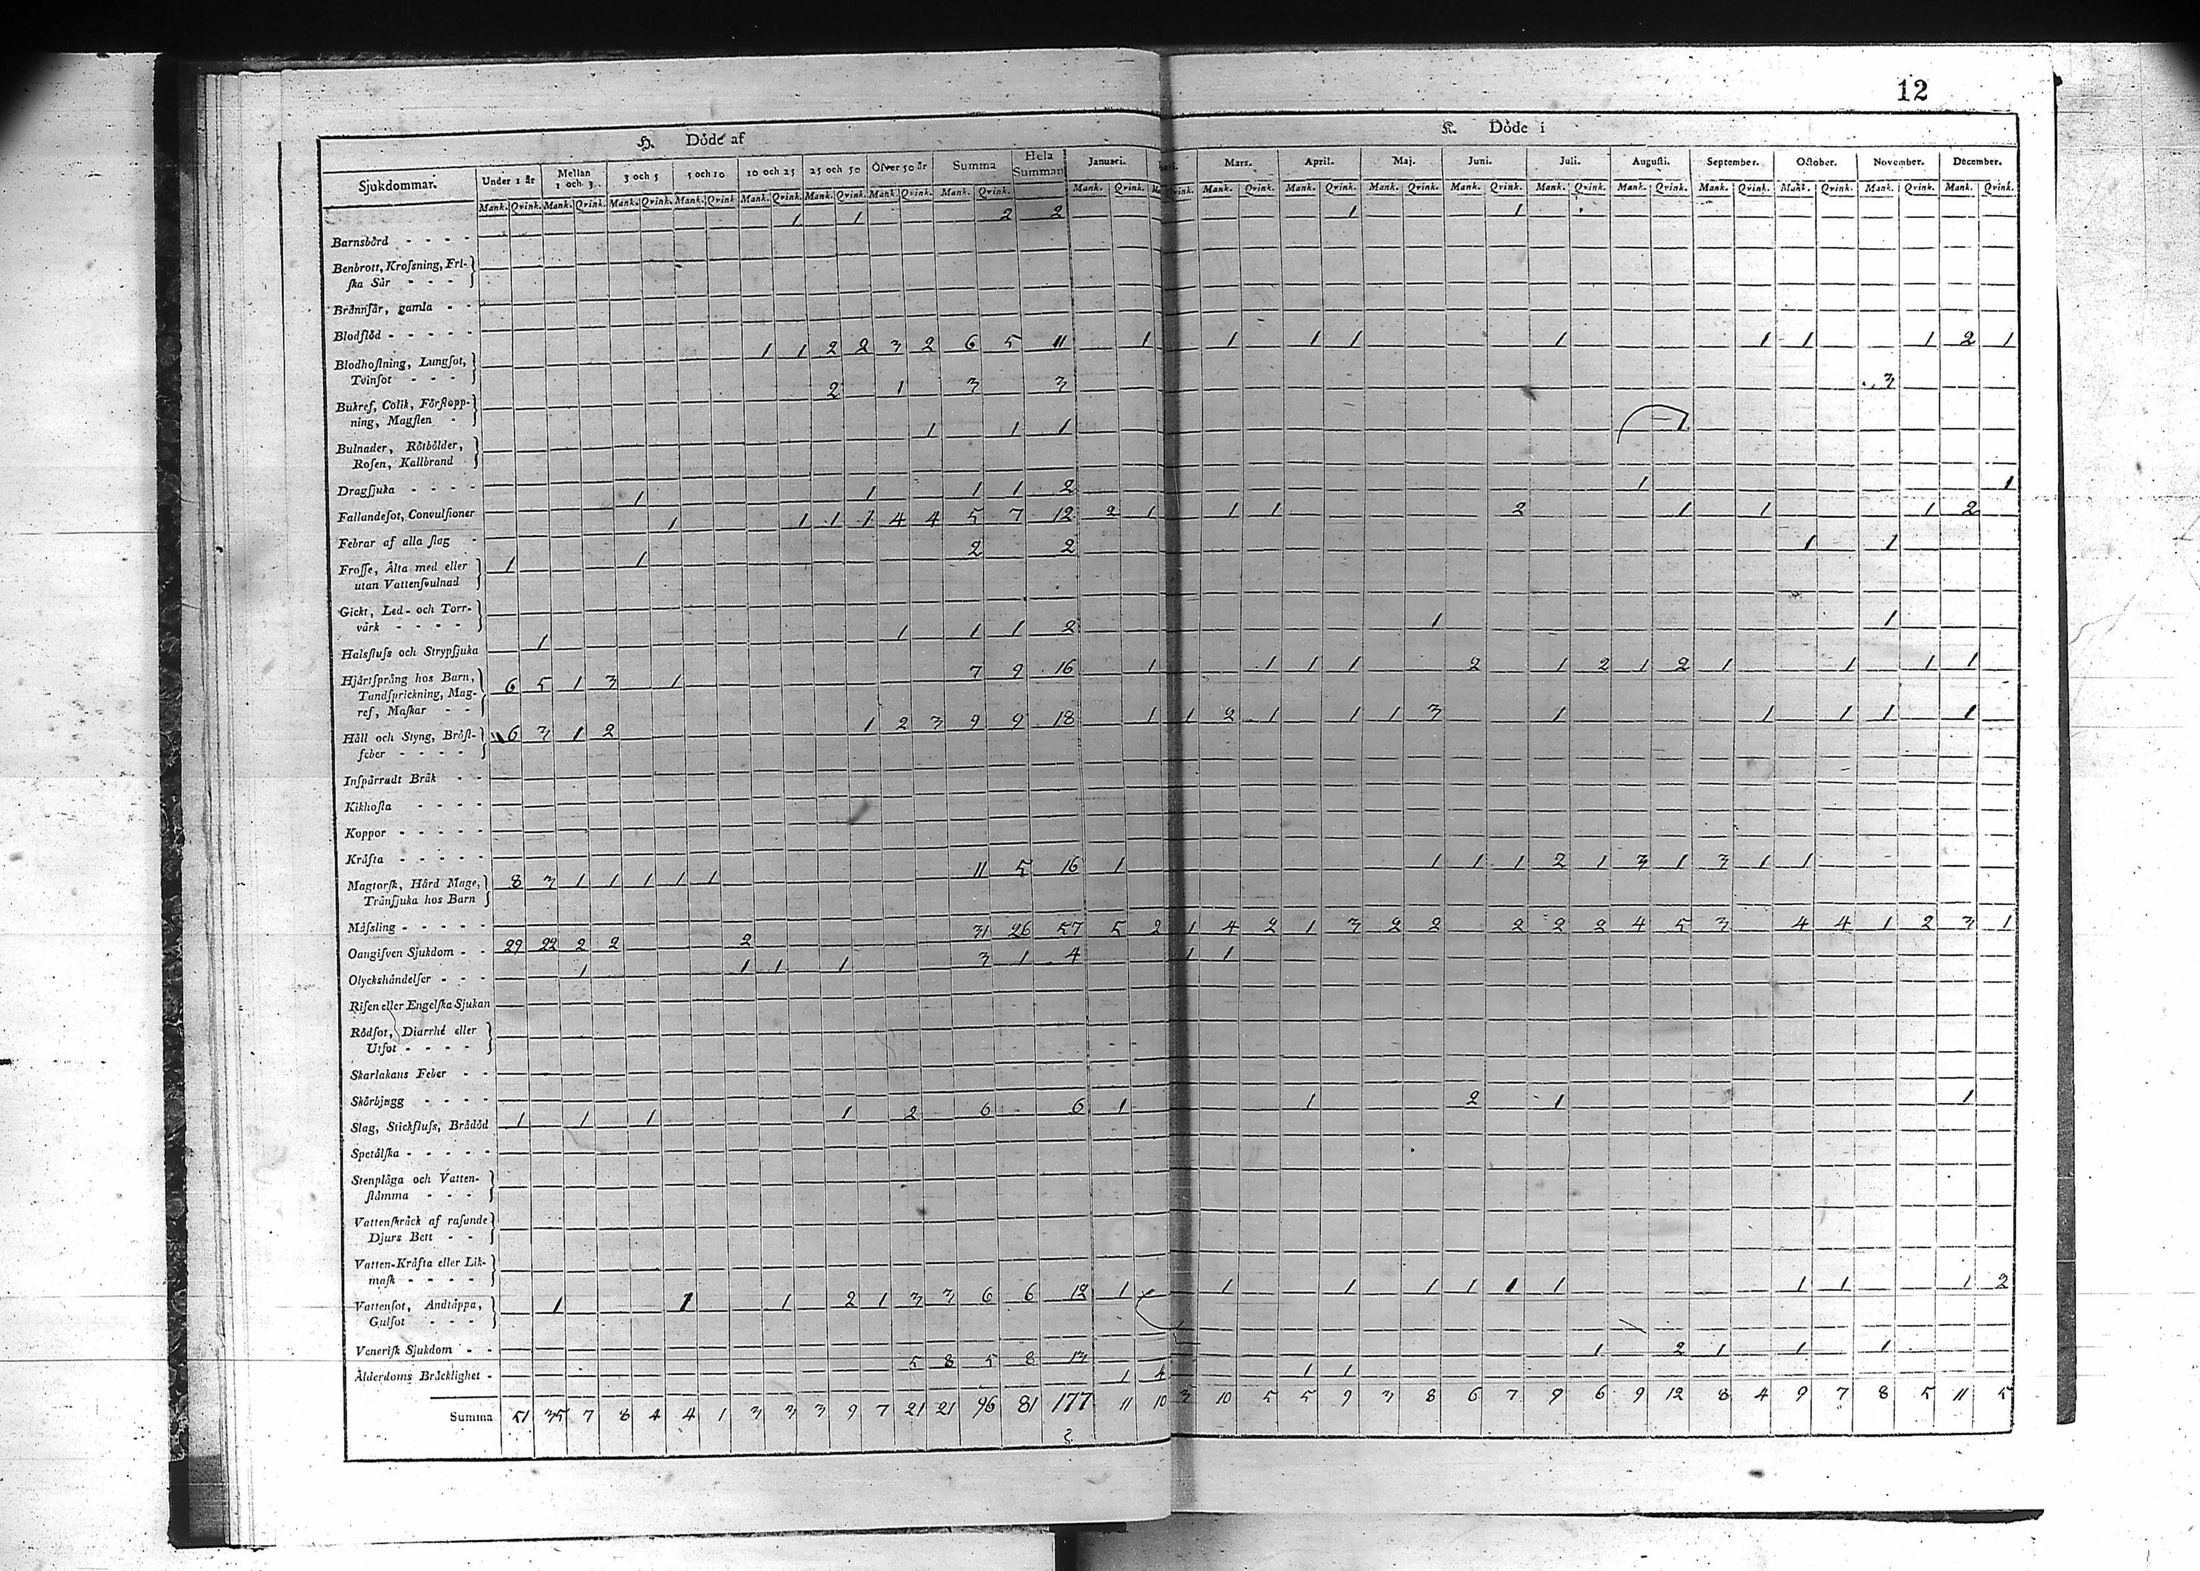 12
H. Döde af
K. Döde i
Sjukdommar. Under 1 år Mellan 1 och 3. 3 och 5 5 och 10 10 och 25 25 och 50 Öfver 50 år Summa Hela Summan Januari. Mars. April. Maj. Juni. Juli. Augusti. September. October. November. December.
Mank. Qvink. Mank. Qvink. Mank. Qvink. Mank. Qvink. Mank. Qvink. Mank. Qvink. Mank. Qvink. Mank. Qvink. Mank. Qvink. Qvink. Mank. Qvink. Mank. Qvink. Mank. Qvink. Mank. Qvink. Mank. Qvink. Mank. Qvink. Mank. Qvink. Mank. Qvink. Mank. Qvink. Mank. Qvink.
Barnsbörd 1 1 2 2 1 1
Benbrott, Krosning, Fri-
ska Sår
Brännsår, gamla
Blodflöd
Blodhostning, Lungsot,
Tvinsot 1 1 2 2 3 2 6 5 11 1 1 1 1 1 1 1 1 2 1
Bukref, Colik, Förstopp-
ning, Magsten 2 1 3 3 3
Bulnader, Rötbölder,
Rosen, Kallbrand 1 1 1 1
Dragsjuka
Fallandesot, Convulsioner 1 1 1 1 2 1 1
Febrar af alla slag 1 1 1 1 4 4 5 7 12 2 1 1 1 2 1 1 1 2
Frosse, Älta med eller
utan Vattensvulnad 1 1 2 2 1 1
Gickt, Led- och Torr-
värk
Halsfluss och Strypsjuka 1 1 1 1 2 1 1
Hjärtsprång hos Barn,
Tandsprickning, Mag-
ref, Maskar 6 5 1 3 1 7 9 16 1 1 1 1 2 1 2 1 2 1 1 1 1
Håll och Styng, Bröst-
feber 6 3 1 2 1 2 3 9 9 18 1 1 2 1 1 1 3 1 1 1 1 1
Inspärradt Bråk
Kikhosta
Koppor
Kräfta
Magtorsk, Hård Mage,
Trånsjuka hos Barn 8 3 1 1 1 1 1 11 5 16 1 1 1 1 2 1 3 1 3 1 1
Mässling
Oangifven Sjukdom 29 22 2 2 2 31 26 57 5 2 1 4 2 1 3 2 2 2 2 2 4 5 3 4 4 1 2 3 1
Olyckshändelser 1 1 1 1 3 1 4 1 1
Risen eller Engelska Sjukan
Rödsot, Diarrhé eller
Utsot
Skarlakans Feber
Skörbjugg
Slag, Stickfluss, Brådöd 1 1 1 1 2 6 6 1 1 2 1 1
Spetälska
Stenplåga och Vatten-
stämma
Vattenskräck af rasande
Djurs Bett
Vatten-Kräfta eller Lik-
mask
Vattensot, Andtäppa,
Gulsot 1 1 1 2 1 3 3 6 6 12 1 1 1 1 1 1 1 1 1 1 2
Venerisk Sjukdom
Ålderdoms Bräcklighet 5 8 5 8 13 1 4 1 1 1 2 1 1 1
Summa 51 35 7 8 4 4 1 3 3 3 9 7 21 21 96 81 177 11 10 3 10 5 5 9 3 8 6 7 9 6 9 12 8 4 9 7 8 5 11 5